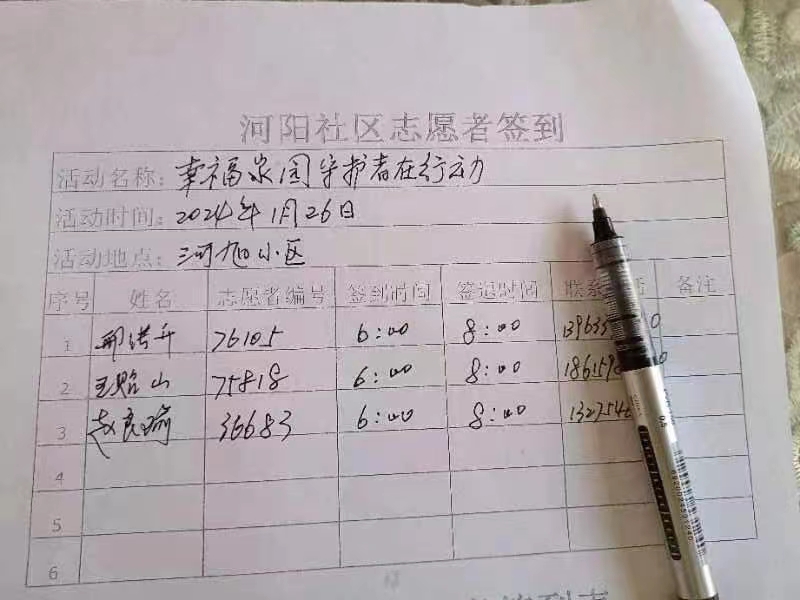 河阳社区志愿者签到
活动名称：幸福家园守护者在行动
活动时间：2024年1月26日
活动地点：河旭小区
序号 姓名 志愿者编号 签到时间 签退时间 联系 备注
1 76105 6:00 8:00
2 王贻山 75818 6:00 8:00
3 赵良瑜 36683 6:00 8:00
4
5
6